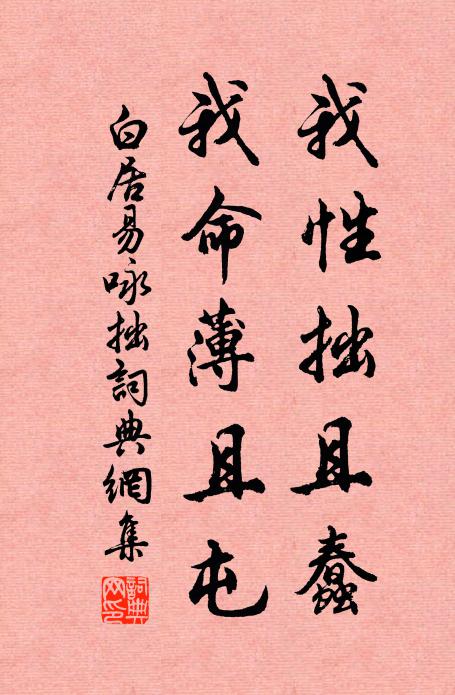 我性拙且蠢
我命薄且屯
白居易咏拙詞典網集
詞典網印